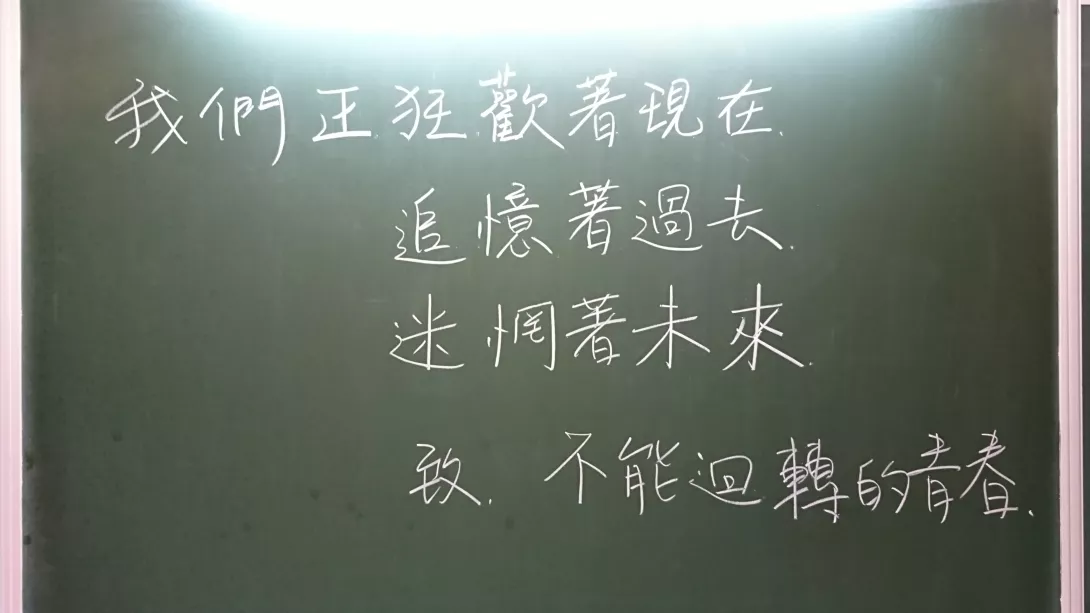 我們正狂歡著現在.
追憶著過去.
迷惘著未來.
致. 不能迴轉的青春.